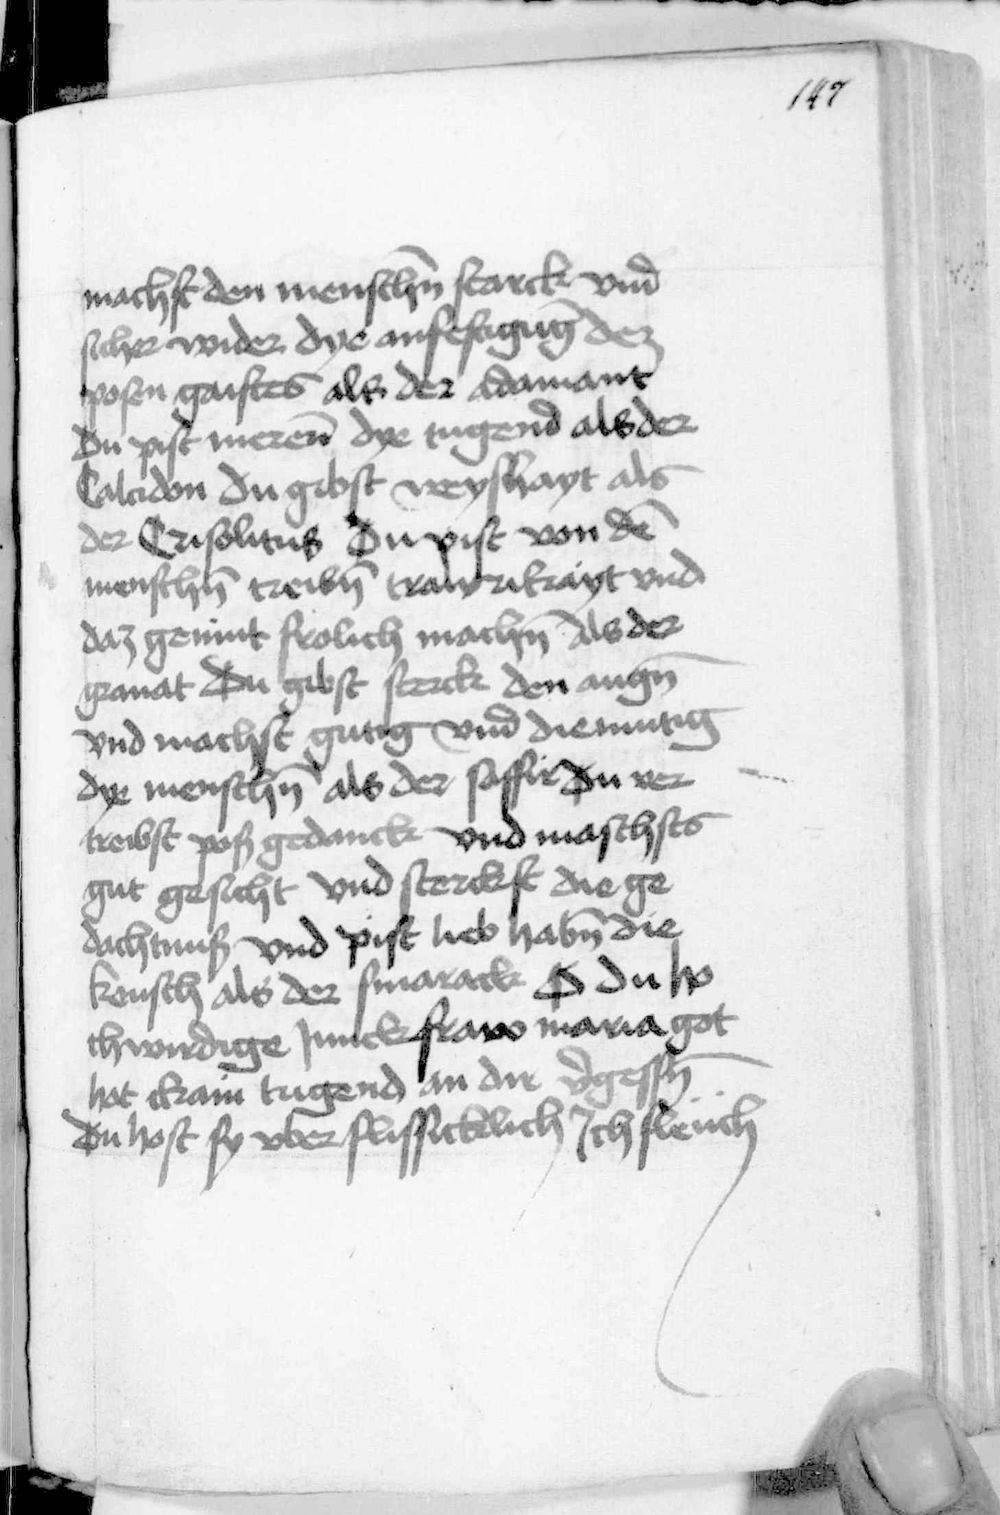 147
machst den menschn̄ starck vnd̄
sicher wider dye anfechtigūg dez
posen gaistes als der adamant
Du pist meren̄ dye tugend als der
Calcidon Du gibst weyshayt als
der Crisolitus Du pist von dē
menschn̄ treibn̄ trawrikayt vnd
daz gemut frolich machn̄ Als der
granat Du gibst sterck den augn̄
vnd machst gutig vnd̄ diemutig
dye menschn̄ als der saffir Du ver
treibst poß gedanck vnd maschsts
gut gesicht vnd sterckst die ge
dachtnuß vnd pist lieb habn̄ die
keusch als der smarack O du ho
chwirdige Junckfraw maria got
hot ckain tugend an dir v̄gessn̄
Du host sy vber flissicklich Ich fleuch